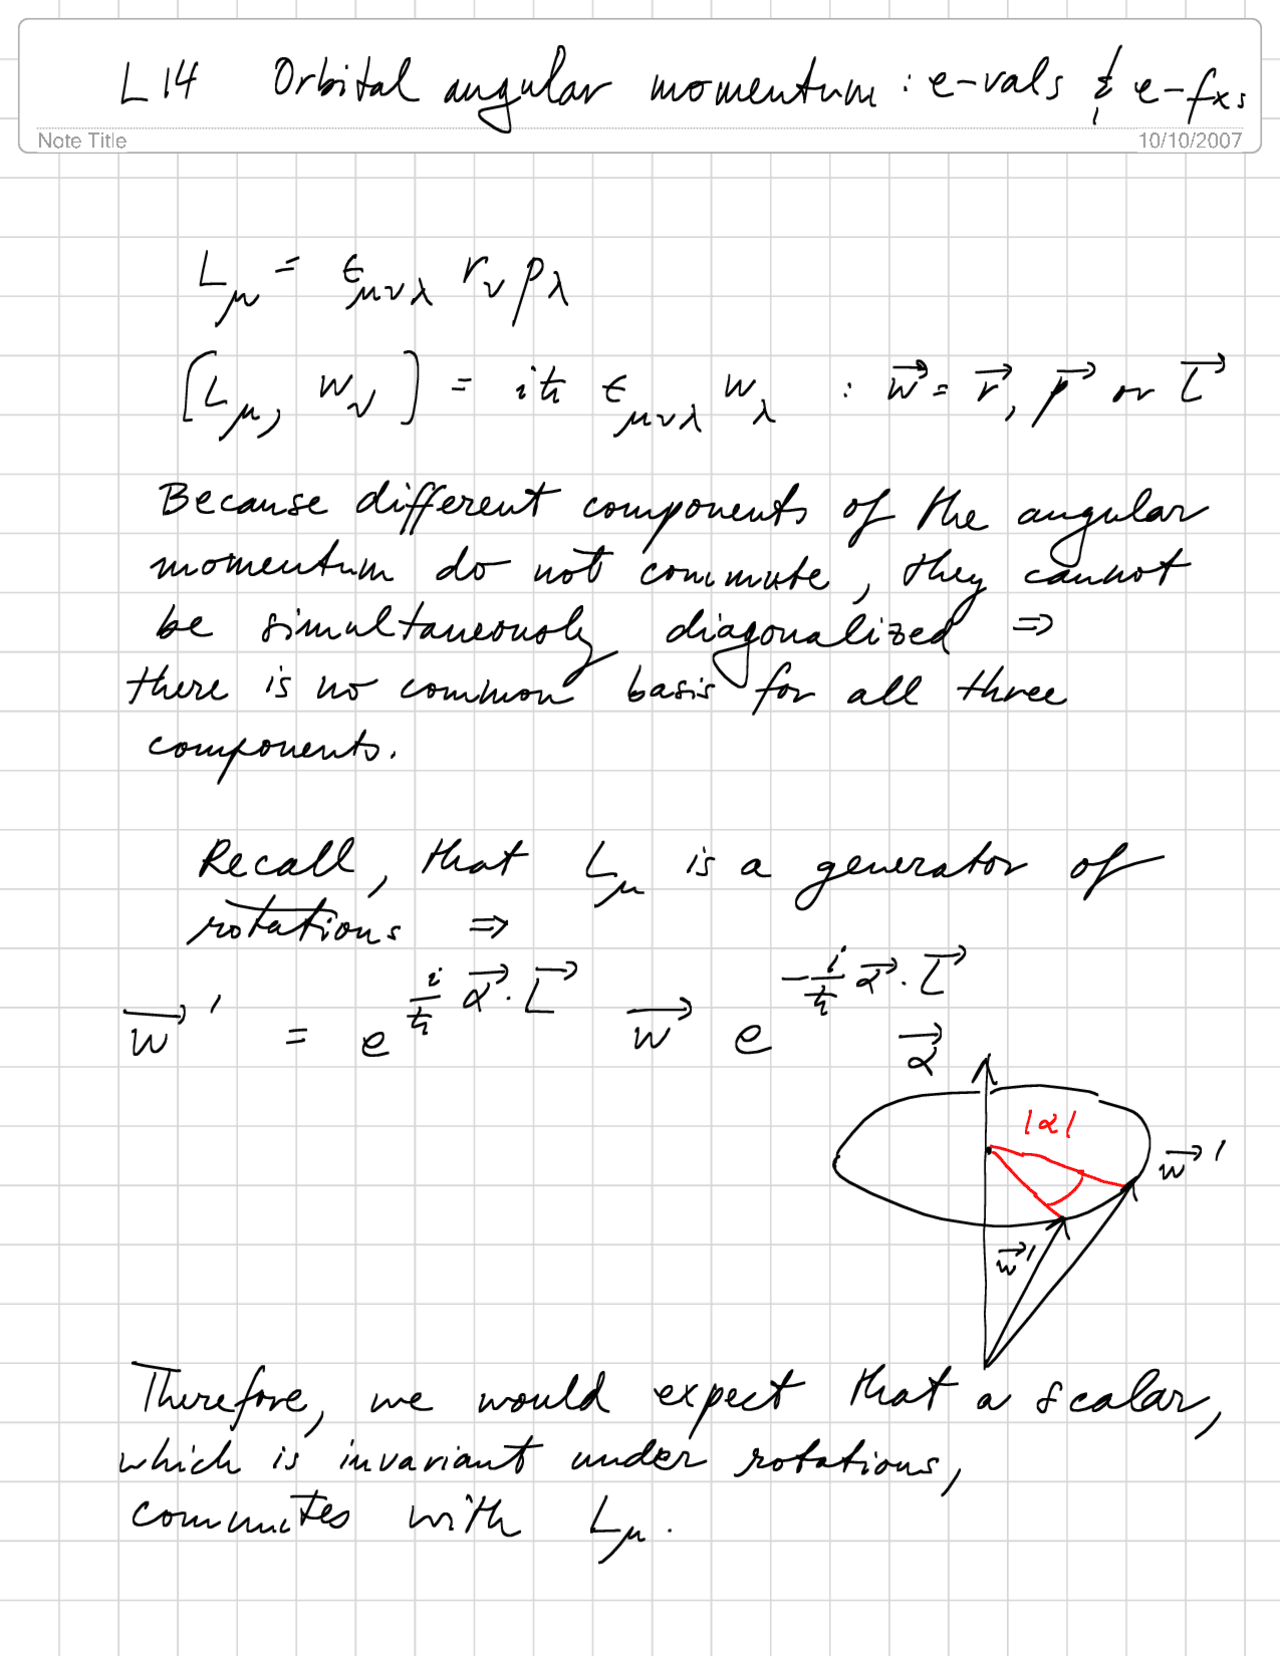 L14 Orbital angular momentum: e-vals & e-fxs
Note Title 10/10/2007
L_μ = ε_μνλ r_ν p_λ
[L_μ, w_ν] = iħ ε_μνλ w_λ : w⃗ = r⃗, p⃗ or L⃗
Because different components of the angular
momentum do not commute, they cannot
be simultaneously diagonalized ⇒
there is no common basis for all three
components.
Recall, that L_μ is a generator of
rotations ⇒
w⃗' = e^{i/ħ α⃗·L⃗} w⃗ e^{-i/ħ α⃗·L⃗}
α⃗
|α|
w⃗'
w⃗'
Therefore, we would expect that a scalar,
which is invariant under rotations,
commutes with L_μ.